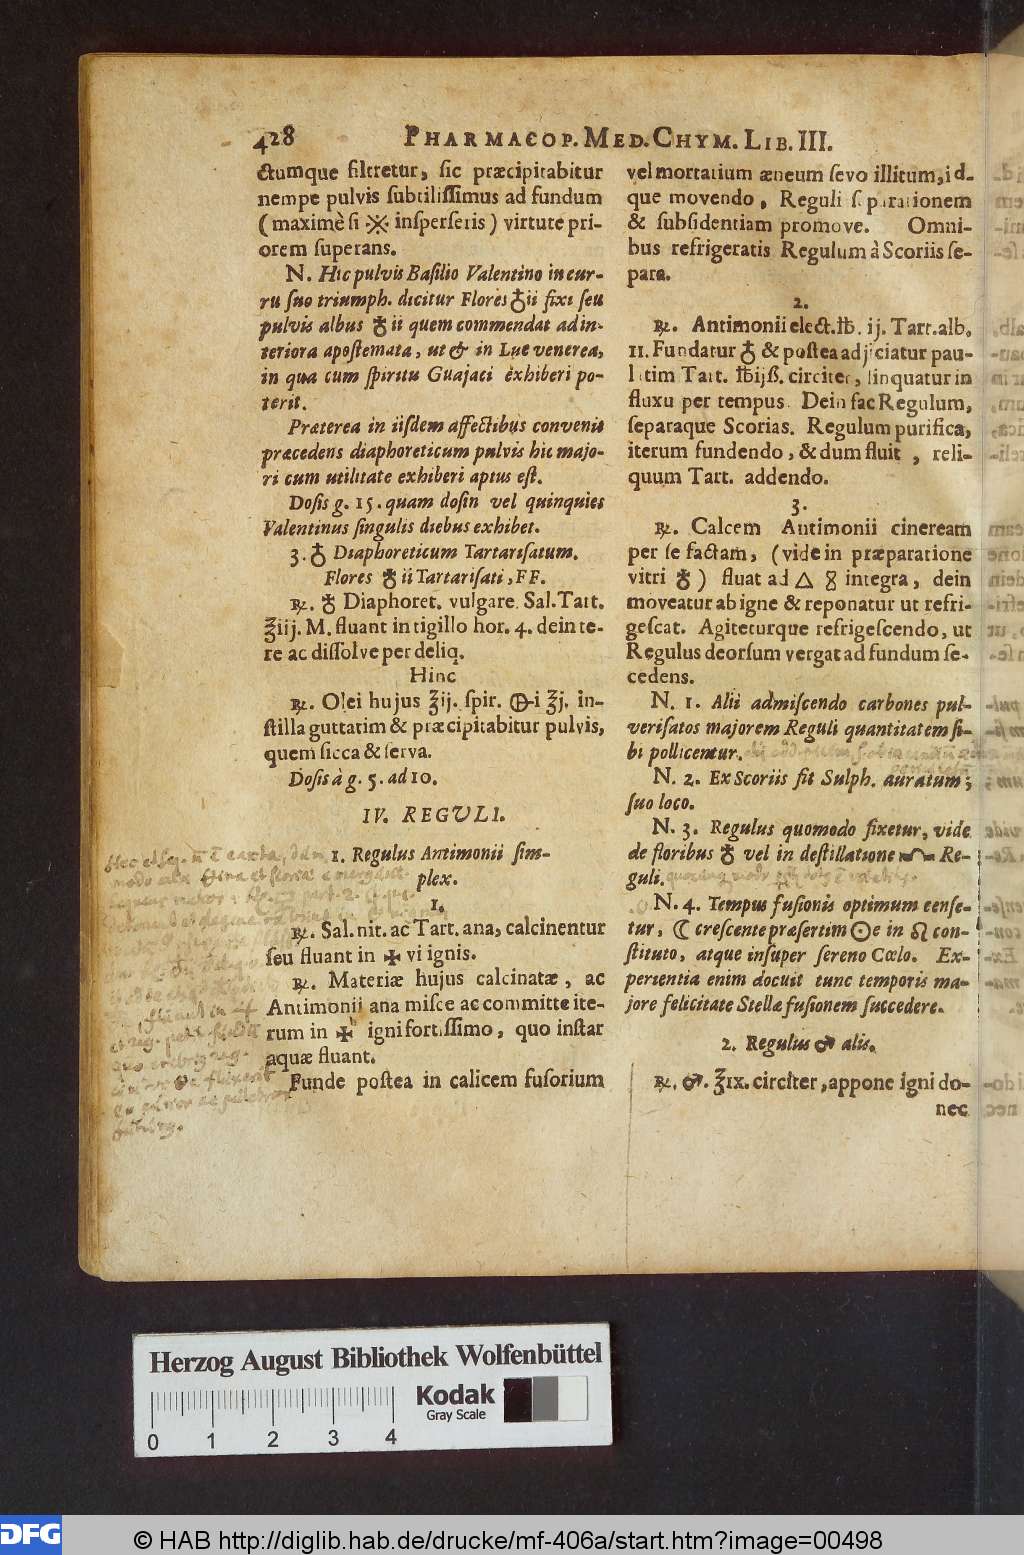 428 PHARMACOP. MED. CHYM. LIB. III.
ctumque filtretur, sic præcipitabitur
nempe pulvis subtilissimus ad fundum
(maximè si ※ insperseris) virtute pri-
orem superans.
N. Hic pulvis Basilio Valentino in cur-
ru suo triumph. dicitur Flores ♁ii fixi seu
pulvis albus ♁ii quem commendat ad in-
teriora apostemata, ut & in Lue venerea,
in qua cum spiritu Guajaci exhiberi po-
terit.
Præterea in iisdem affectibus convenit
præcedens diaphoreticum pulvis hic majo-
ri cum utilitate exhiberi aptus est.
Dosis g. 15. quam dosin vel quinquies
Valentinus singulis diebus exhibet.
3. ♁ Diaphoreticum Tartarisatum.
Flores ♁ii Tartarisati, FF.
℞. ♁ Diaphoret. vulgare. Sal. Tart.
℥iij. M. fluant in tigillo hor. 4. dein te-
re ac dissolve per deliq.
Hinc
℞. Olei hujus ℥ij. spir. 🜖i ℥j. in-
stilla guttatim & præcipitabitur pulvis,
quem sicca & serva.
Dosis à g. 5. ad 10.
IV. REGULI.
1. Regulus Antimonii sim-
plex.
1.
℞. Sal. nit. ac Tart. ana, calcinentur
seu fluant in ✠ vi ignis.
℞. Materiæ hujus calcinatæ, ac
Antimonii ana misce ac committe ite-
rum in ✠ igni fortissimo, quo instar
aquæ fluant.
Funde postea in calicem fusorium
vel mortarium æneum sevo illitum, id-
que movendo, Reguli separationem
& subsidentiam promove. Omni-
bus refrigeratis Regulum à Scoriis se-
para.
2.
℞. Antimonii elect. ℔. ij. Tart. alb.
11. Fundatur ♁ & postea adjiciatur pau-
latim Tart. ℔ijß. circiter, linquatur in
fluxu per tempus. Dein fac Regulum,
separaque Scorias. Regulum purifica,
iterum fundendo, & dum fluit, reli-
quum Tart. addendo.
3.
℞. Calcem Antimonii cineream
per se factam, (vide in præparatione
vitri ♁) fluat ad △ ⌛ integra, dein
moveatur ab igne & reponatur ut refri-
gescat. Agiteturque refrigescendo, ut
Regulus deorsum vergat ad fundum se-
cedens.
N. 1. Alii admiscendo carbones pul-
verisatos majorem Reguli quantitatem si-
bi pollicentur.
N. 2. Ex Scoriis fit Sulph. auratum;
suo loco.
N. 3. Regulus quomodo fixetur, vide
de floribus ♁ vel in destillatione Re-
guli.
N. 4. Tempus fusionis optimum cense-
tur, ☾ crescente præsertim ☉e in ♌ con-
stituto, atque insuper sereno Cœlo. Ex-
perientia enim docuit tunc temporis ma-
jore felicitate Stellæ fusionem succedere.
2. Regulus ♂ alis.
℞. ♂. ℥ix. circiter, appone igni do-
nec
Herzog August Bibliothek Wolfenbüttel
Kodak
Gray Scale
0 1 2 3 4
DFG © HAB http://diglib.hab.de/drucke/mf-406a/start.htm?image=00498